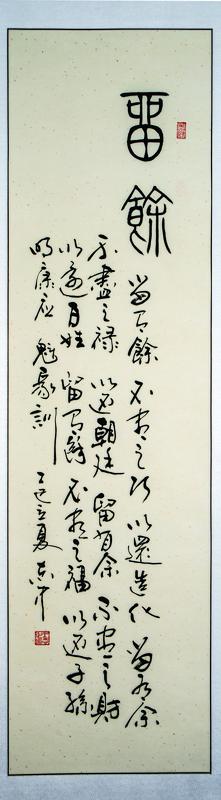 畱餘
留有餘不盡之巧以還造化留有余
不盡之祿以还朝廷留有余不盡之財
以還百姓留有餘不盡之福以还子孫
明康应魁家訓
立夏